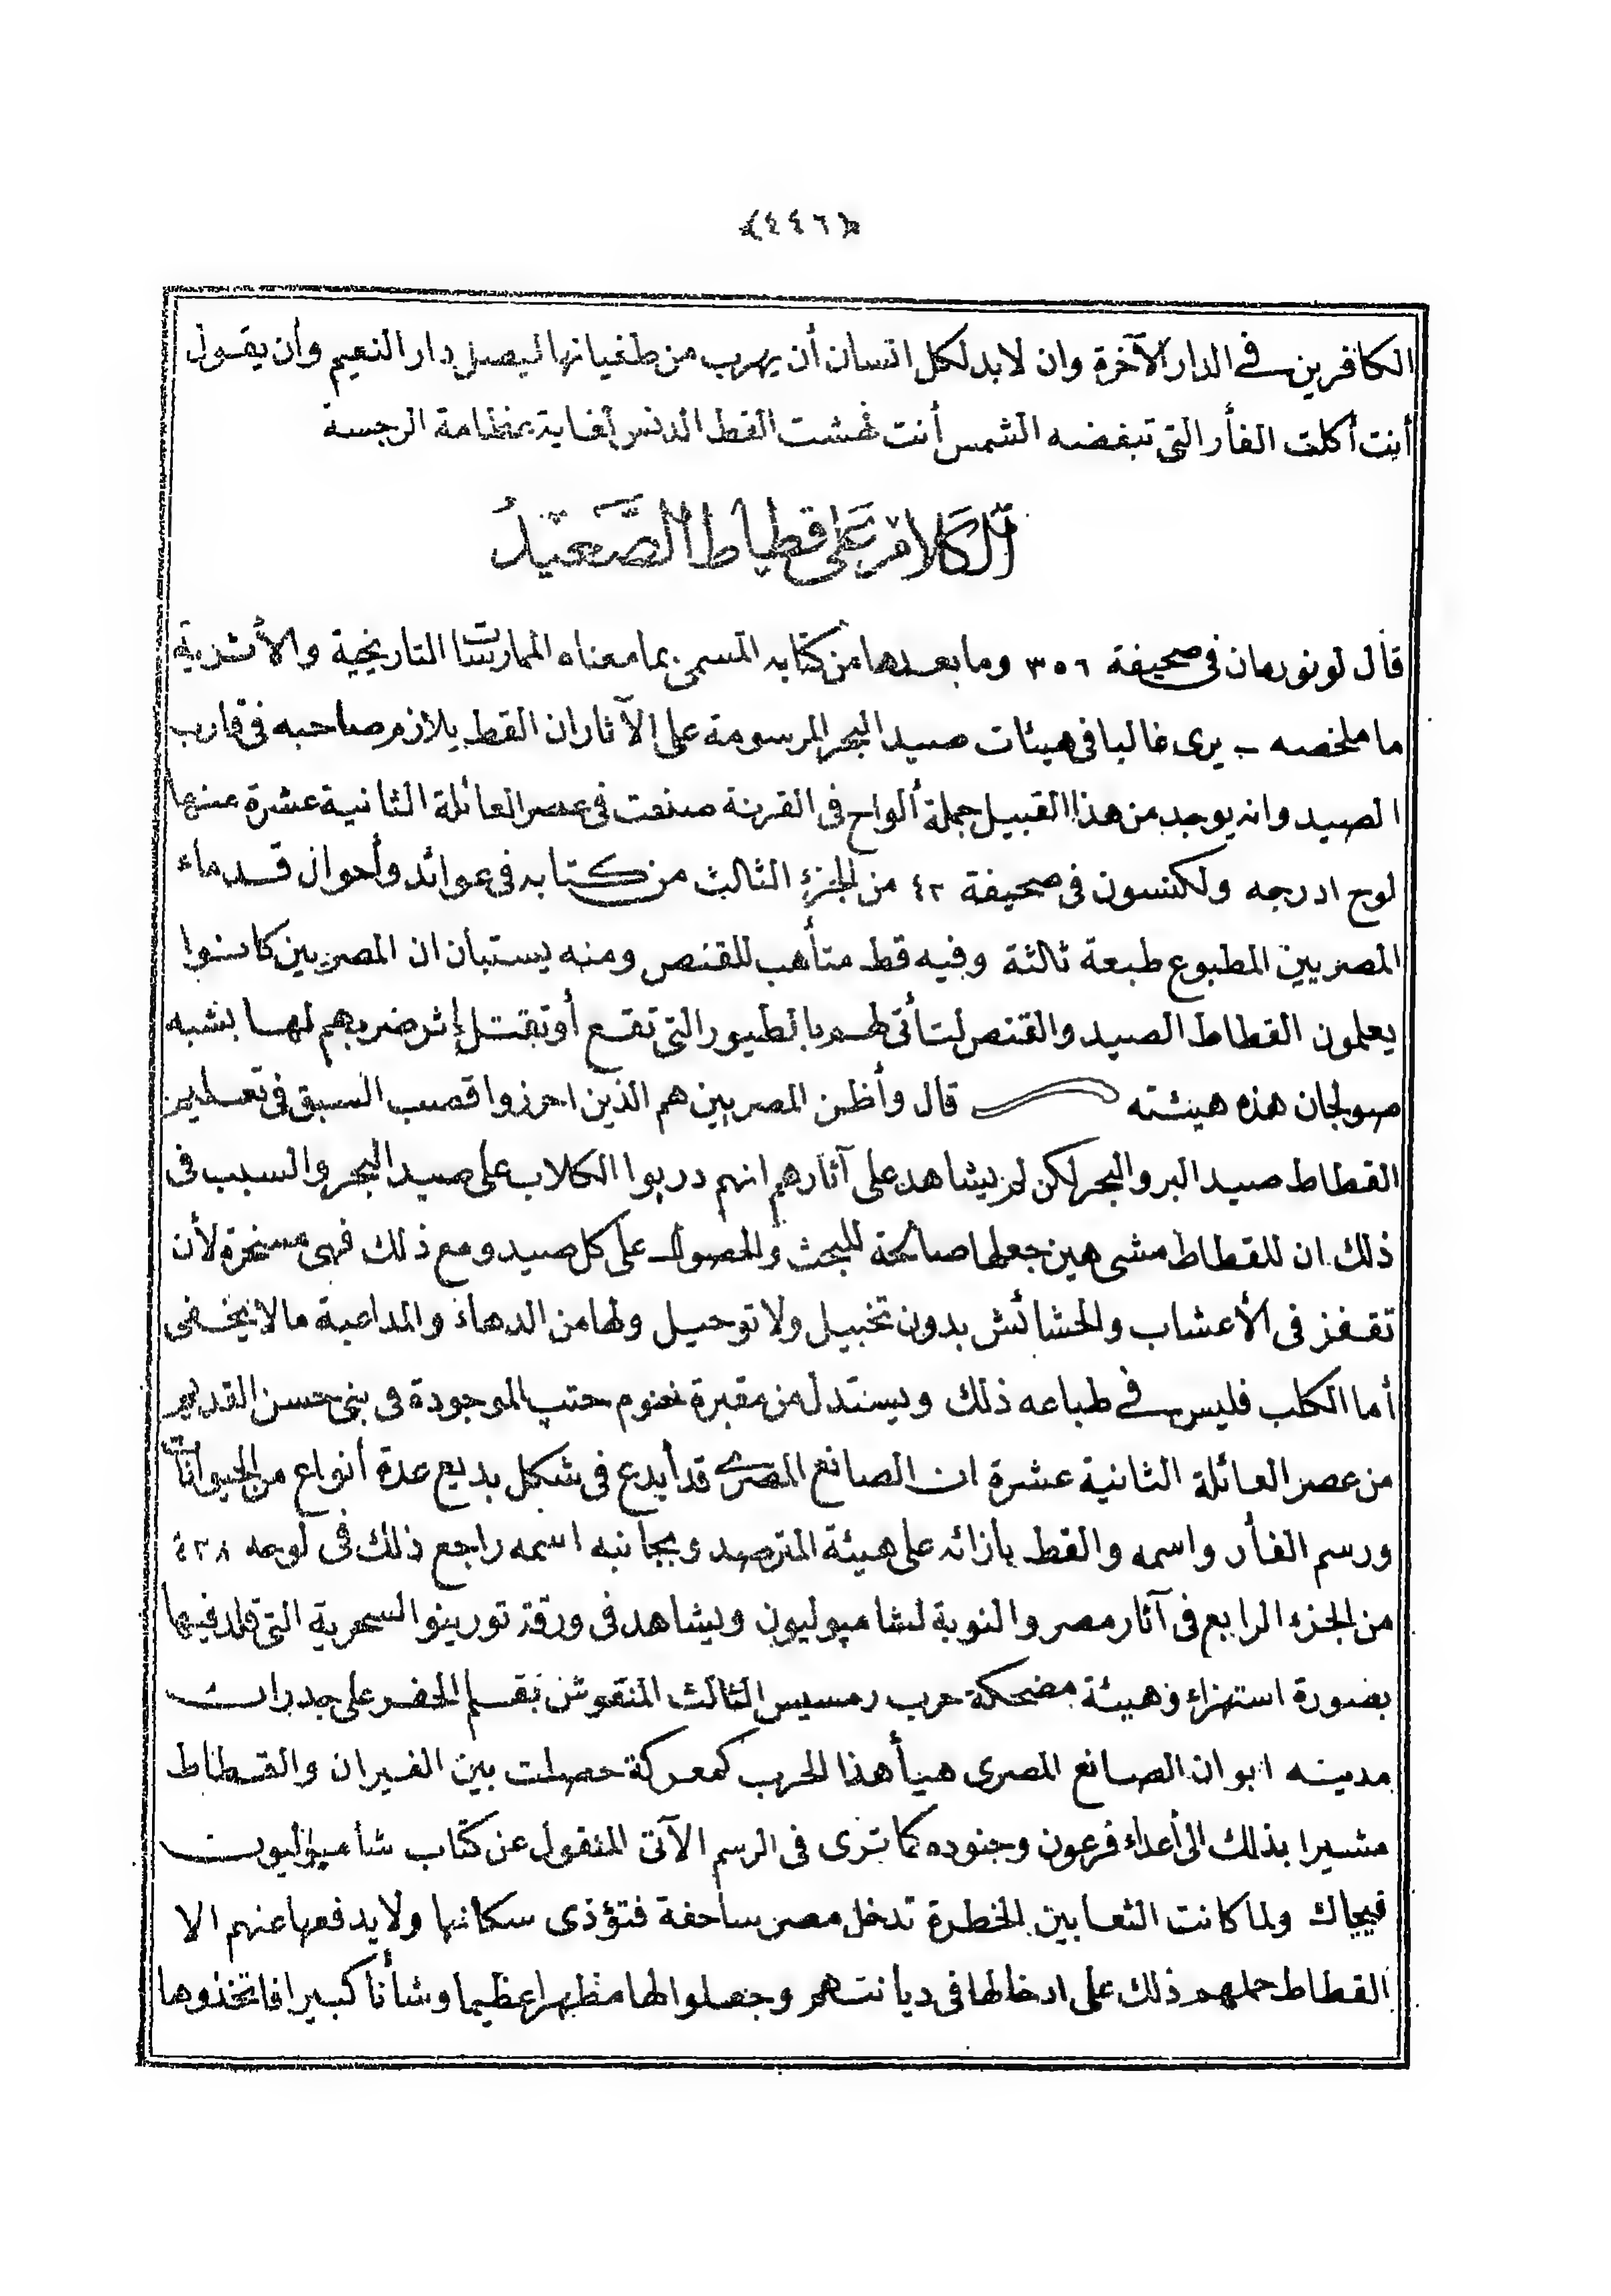 ﴿٤٤٦﴾
الكافرين فى الدار الآخرة وان لابد لكل انسان أن يهرب من طغيانها ليصل دار النعيم وأن يقول
أنت أكلت الفأر التى تبغضه الشمس أنت نهشت القط الدنس لغاية بمظامة الرجسة
الكلام على قطاط الصعيد
قال لونورمان فى صحيفة ٣٥٦ وما بعدها من كتابه المسمى بما معناه الممارسات التاريخية والأثرية
ما ملخصه - يرى غالبا فى هيئات صيد البحر المرسومة على الآثار ان القط يلازم صاحبه فى قارب
الصيد وانه يوجد من هذا القبيل جملة ألواح فى القرنة صنعت فى عصر العائلة الثانية عشرة منها
لوح ادرجه ولكنسون فى صحيفة ٤٢ من الجزء الثالث من كتابه فى عوائد وأحوال قدماء
المصريين المطبوع طبعة ثالثة وفيه قط متأهب للقنص ومنه يستبان ان المصريين كانوا
يعلمون القطاط الصيد والقنص لتأتى لهم بالطيور التى تقع أو تقتل إثر ضربهم لها بشبه
صولجان هذه هيئته قال وأظن المصريين هم الذين احرزوا قصب السبق فى تعليم
القطاط صيد البر والبحر لكن لم يشاهد على آثارهم انهم دربوا الكلاب على صيد البحر والسبب فى
ذلك ان للقطاط مشى هين جعلها صالحة للبحث والحصول على كل صيد ومع ذلك فهى مسخرة لأن
تقفز فى الأعشاب والحشائش بدون تخبيل ولا توحيل ولها من الدهاء والمداعبة مالا يخفى
أما الكلب فليس فى طباعه ذلك ويستدل من مقبرة نحنوم حتب الموجودة فى بنى حسن القديم
من عصر العائلة الثانية عشرة ان الصانع المصرى قد أبدع فى شكل بديع عدة أنواع من الحيوانات
ورسم الفأر واسمه والقط بأزائه على هيئة المترصد وبجانبه اسمه راجع ذلك فى لوحه ٤٢٨
من الجزء الرابع فى آثار مصر والنوبة لشامپوليون ويشاهد فى ورقة تورينو السحرية التى قلد فيها
بصورة استهزاء وهيئة مضحكة حرب رمسيس الثالث المنقوش بقلم الحفر على جدران
مدينه ابو ان الصانع المصرى هيأ هذا الحرب كمعركة حصلت بين الفيران والقطاط
مشيرا بذلك الى أعداء فرعون وجنوده كما ترى فى الرسم الآتى المنقول عن كتاب شامپوليون
فيجاك ولما كانت الثعابين الخطرة تدخل مصر ساحفة فتؤذى سكانها ولا يدفعها عنهم الا
القطاط حملهم ذلك على ادخالها فى ديانتهم وجعلوا لها مظهرا عظيما وشأنا كبيرا فاتخذوها